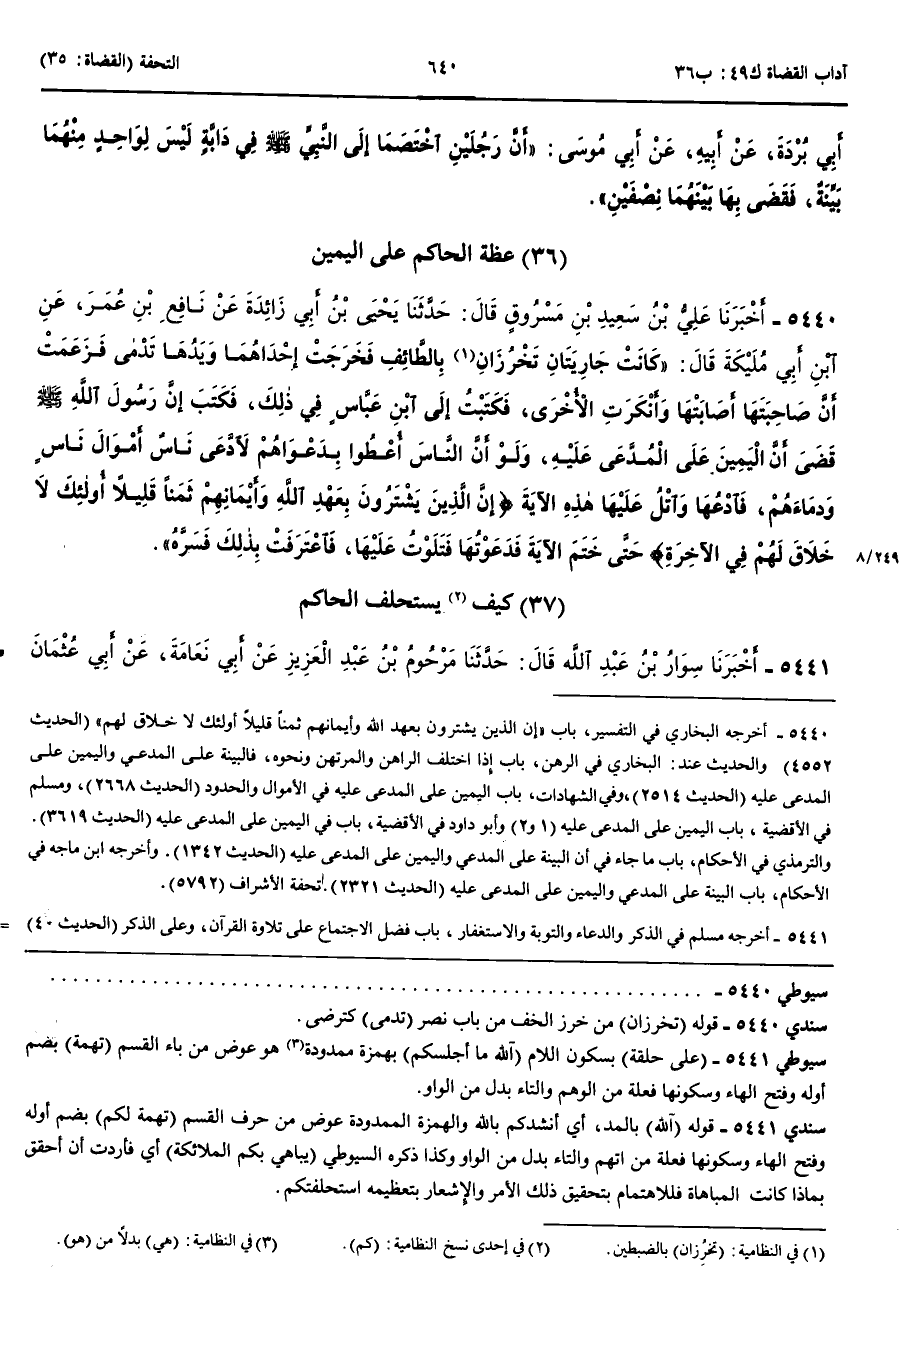 آداب القضاة ك٤٩: ب٣٦ ٦٤٠ التحفة (القضاة: ٣٥)
أَبِي بُرْدَةَ، عَنْ أَبِيهِ، عَنْ أَبِي مُوسَى: «أَنَّ رَجُلَيْنِ ٱخْتَصَمَا إِلَى النَّبِيِّ ﷺ فِي دَابَّةٍ لَيْسَ لِوَاحِدٍ مِنْهُمَا
بَيِّنَةٌ، فَقَضَى بِهَا بَيْنَهُمَا نِصْفَيْنِ».
(٣٦) عظة الحاكم على اليمين
٥٤٤٠ ـ أَخْبَرَنَا عَلِيُّ بْنُ سَعِيدِ بْنِ مَسْرُوقٍ قَالَ: حَدَّثَنَا يَحْيَى بْنُ أَبِي زَائِدَةَ عَنْ نَافِعِ بْنِ عُمَرَ، عَنِ
ٱبْنِ أَبِي مُلَيْكَةَ قَالَ: «كَانَتْ جَارِيَتَانِ تَخْرُزَانِ(١) بِالطَّائِفِ فَخَرَجَتْ إِحْدَاهُمَا وَيَدُهَا تَدْمَى فَزَعَمَتْ
أَنَّ صَاحِبَتَهَا أَصَابَتْهَا وَأَنْكَرَتِ الْأُخْرَى، فَكَتَبْتُ إِلَى ٱبْنِ عَبَّاسٍ فِي ذٰلِكَ، فَكَتَبَ إِنَّ رَسُولَ اللَّهِ ﷺ
قَضَىَ أَنَّ الْيَمِينَ عَلَى الْمُدَّعَى عَلَيْهِ، وَلَوْ أَنَّ النَّاسَ أُعْطُوا بِدَعْوَاهُمْ لَٱدَّعَى نَاسٌ أَمْوَالَ نَاسٍ
وَدِمَاءَهُمْ، فَٱدْعُهَا وَٱتْلُ عَلَيْهَا هٰذِهِ الآيَةَ ﴿إِنَّ الَّذِينَ يَشْتَرُونَ بِعَهْدِ اللَّهِ وَأَيْمَانِهِمْ ثَمَناً قَلِيلاً أُولٰئِكَ لَا
خَلَاقَ لَهُمْ فِي الآخِرَةِ﴾ حَتَّى خَتَمَ الآيَةَ فَدَعَوْتُهَا فَتَلَوْتُ عَلَيْهَا، فَٱعْتَرَفَتْ بِذٰلِكَ فَسَرَّهُ». ٨/٢٤٩
(٣٧) كيف (٢) يستحلف الحاكم
٥٤٤١ ـ أَخْبَرَنَا سِوَارُ بْنُ عَبْدِ اللَّه قَالَ: حَدَّثَنَا مَرْحُومُ بْنُ عَبْدِ الْعَزِيزِ عَنْ أَبِي نَعَامَةَ، عَنْ أَبِي عُثْمَانَ
٥٤٤٠ ـ أخرجه البخاري في التفسير، باب «إن الذين يشترون بعهد الله وأيمانهم ثمناً قليلاً أولئك لا خلاق لهم» (الحديث
٤٥٥٢) والحديث عند: البخاري في الرهن، باب إذا اختلف الراهن والمرتهن ونحوه، فالبينة على المدعي واليمين على
المدعى عليه (الحديث ٢٥١٤)، وفي الشهادات، باب اليمين على المدعى عليه في الأموال والحدود (الحديث ٢٦٦٨)، ومسلم
في الأقضية، باب اليمين على المدعى عليه (١ و٢) وأبو داود في الأقضية، باب في اليمين على المدعى عليه (الحديث ٣٦١٩).
والترمذي في الأحكام، باب ما جاء في أن البينة على المدعي واليمين على المدعى عليه (الحديث ١٣٤٢). وأخرجه ابن ماجه في
الأحكام، باب البينة على المدعي واليمين على المدعى عليه (الحديث ٢٣٢١). تحفة الأشراف (٥٧٩٢).
٥٤٤١ ـ أخرجه مسلم في الذكر والدعاء والتوبة والاستغفار، باب فضل الاجتماع على تلاوة القرآن، وعلى الذكر (الحديث ٤٠) =
سيوطي ٥٤٤٠ ـ . . . . . . . . . . . . . . . . . . . . . . . . . . . . . .
سندي ٥٤٤٠ ـ قوله (تخرزان) من خرز الخف من باب نصر (تدمى) كترضى.
سيوطي ٥٤٤١ ـ (على حلقة) بسكون اللام (آلله ما أجلسكم) بهمزة ممدودة(٣) هو عوض من باء القسم (تهمة) بضم
أوله وفتح الهاء وسكونها فعلة من الوهم والتاء بدل من الواو.
سندي ٥٤٤١ ـ قوله (آلله) بالمد، أي أنشدكم بالله والهمزة الممدودة عوض من حرف القسم (تهمة لكم) بضم أوله
وفتح الهاء وسكونها فعلة من اتهم والتاء بدل من الواو وكذا ذكره السيوطي (يباهي بكم الملائكة) أي فأردت أن أحقق
بماذا كانت المباهاة فللاهتمام بتحقيق ذلك الأمر والإشعار بتعظيمه استحلفتكم.
(١) في النظامية: (تخرُِزان) بالضبطين. (٢) في إحدى نسخ النظامية: (كم). (٣) في النظامية: (هي) بدلاً من (هو).